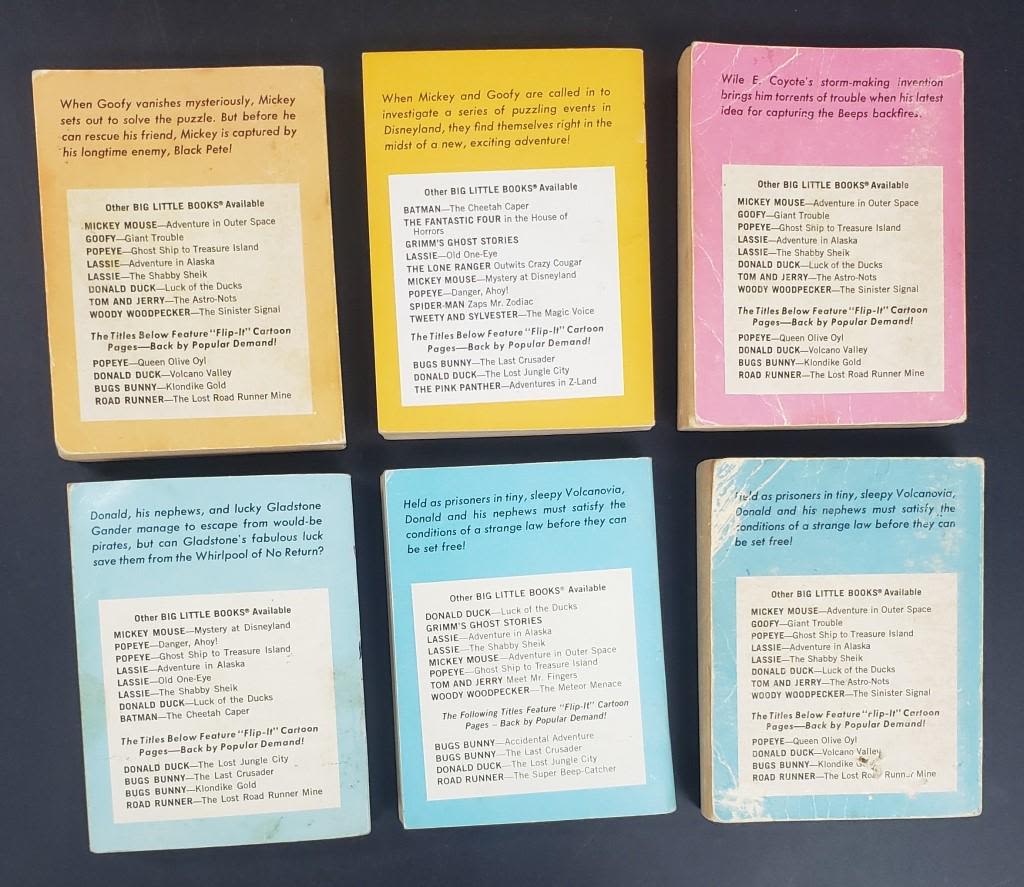 When Goofy vanishes mysteriously, Mickey
sets out to solve the puzzle. But before he
can rescue his friend, Mickey is captured by
his longtime enemy, Black Pete!
Other BIG LITTLE BOOKS® Available
MICKEY MOUSE—Adventure in Outer Space
GOOFY—Giant Trouble
POPEYE—Ghost Ship to Treasure Island
LASSIE—Adventure in Alaska
LASSIE—The Shabby Sheik
DONALD DUCK—Luck of the Ducks
TOM AND JERRY—The Astro-Nots
WOODY WOODPECKER—The Sinister Signal
The Titles Below Feature "Flip-It" Cartoon
Pages—Back by Popular Demand!
POPEYE—Queen Olive Oyl
DONALD DUCK—Volcano Valley
BUGS BUNNY—Klondike Gold
ROAD RUNNER—The Lost Road Runner Mine
When Mickey and Goofy are called in to
investigate a series of puzzling events in
Disneyland, they find themselves right in the
midst of a new, exciting adventure!
Other BIG LITTLE BOOKS® Available
BATMAN—The Cheetah Caper
THE FANTASTIC FOUR in the House of
Horrors
GRIMM'S GHOST STORIES
LASSIE—Old One-Eye
THE LONE RANGER Outwits Crazy Cougar
MICKEY MOUSE—Mystery at Disneyland
POPEYE—Danger, Ahoy!
SPIDER-MAN Zaps Mr. Zodiac
TWEETY AND SYLVESTER—The Magic Voice
The Titles Below Feature "Flip-It" Cartoon
Pages—Back by Popular Demand!
BUGS BUNNY—The Last Crusader
DONALD DUCK—The Lost Jungle City
THE PINK PANTHER—Adventures in Z-Land
Wile E. Coyote's storm-making invention
brings him torrents of trouble when his latest
idea for capturing the Beeps backfires.
Other BIG LITTLE BOOKS® Available
MICKEY MOUSE—Adventure in Outer Space
GOOFY—Giant Trouble
POPEYE—Ghost Ship to Treasure Island
LASSIE—Adventure in Alaska
LASSIE—The Shabby Sheik
DONALD DUCK—Luck of the Ducks
TOM AND JERRY—The Astro-Nots
WOODY WOODPECKER—The Sinister Signal
The Titles Below Feature "Flip-It" Cartoon
Pages—Back by Popular Demand!
POPEYE—Queen Olive Oyl
DONALD DUCK—Volcano Valley
BUGS BUNNY—Klondike Gold
ROAD RUNNER—The Lost Road Runner Mine
Donald, his nephews, and lucky Gladstone
Gander manage to escape from would-be
pirates, but can Gladstone's fabulous luck
save them from the Whirlpool of No Return?
Other BIG LITTLE BOOKS® Available
MICKEY MOUSE—Mystery at Disneyland
POPEYE—Danger, Ahoy!
POPEYE—Ghost Ship to Treasure Island
LASSIE—Adventure in Alaska
LASSIE—Old One-Eye
LASSIE—The Shabby Sheik
DONALD DUCK—Luck of the Ducks
BATMAN—The Cheetah Caper
The Titles Below Feature "Flip-It" Cartoon
Pages—Back by Popular Demand!
DONALD DUCK—The Lost Jungle City
BUGS BUNNY—The Last Crusader
BUGS BUNNY—Klondike Gold
ROAD RUNNER—The Lost Road Runner Mine
Held as prisoners in tiny, sleepy Volcanovia,
Donald and his nephews must satisfy the
conditions of a strange law before they can
be set free!
Other BIG LITTLE BOOKS® Available
DONALD DUCK—Luck of the Ducks
GRIMM'S GHOST STORIES
LASSIE—Adventure in Alaska
LASSIE—The Shabby Sheik
MICKEY MOUSE—Adventure in Outer Space
POPEYE—Ghost Ship to Treasure Island
TOM AND JERRY Meet Mr. Fingers
WOODY WOODPECKER—The Meteor Menace
The Following Titles Feature "Flip-It" Cartoon
Pages – Back by Popular Demand!
BUGS BUNNY—Accidental Adventure
BUGS BUNNY—The Last Crusader
DONALD DUCK—The Lost Jungle City
ROAD RUNNER—The Super Beep-Catcher
Held as prisoners in tiny, sleepy Volcanovia,
Donald and his nephews must satisfy the
conditions of a strange law before they can
be set free!
Other BIG LITTLE BOOKS® Available
MICKEY MOUSE—Adventure in Outer Space
GOOFY—Giant Trouble
POPEYE—Ghost Ship to Treasure Island
LASSIE—Adventure in Alaska
LASSIE—The Shabby Sheik
DONALD DUCK—Luck of the Ducks
TOM AND JERRY—The Astro-Nots
WOODY WOODPECKER—The Sinister Signal
The Titles Below Feature "Flip-It" Cartoon
Pages—Back by Popular Demand!
POPEYE—Queen Olive Oyl
DONALD DUCK—Volcano Valley
BUGS BUNNY—Klondike
ROAD RUNNER—The Lost Road Runner Mine